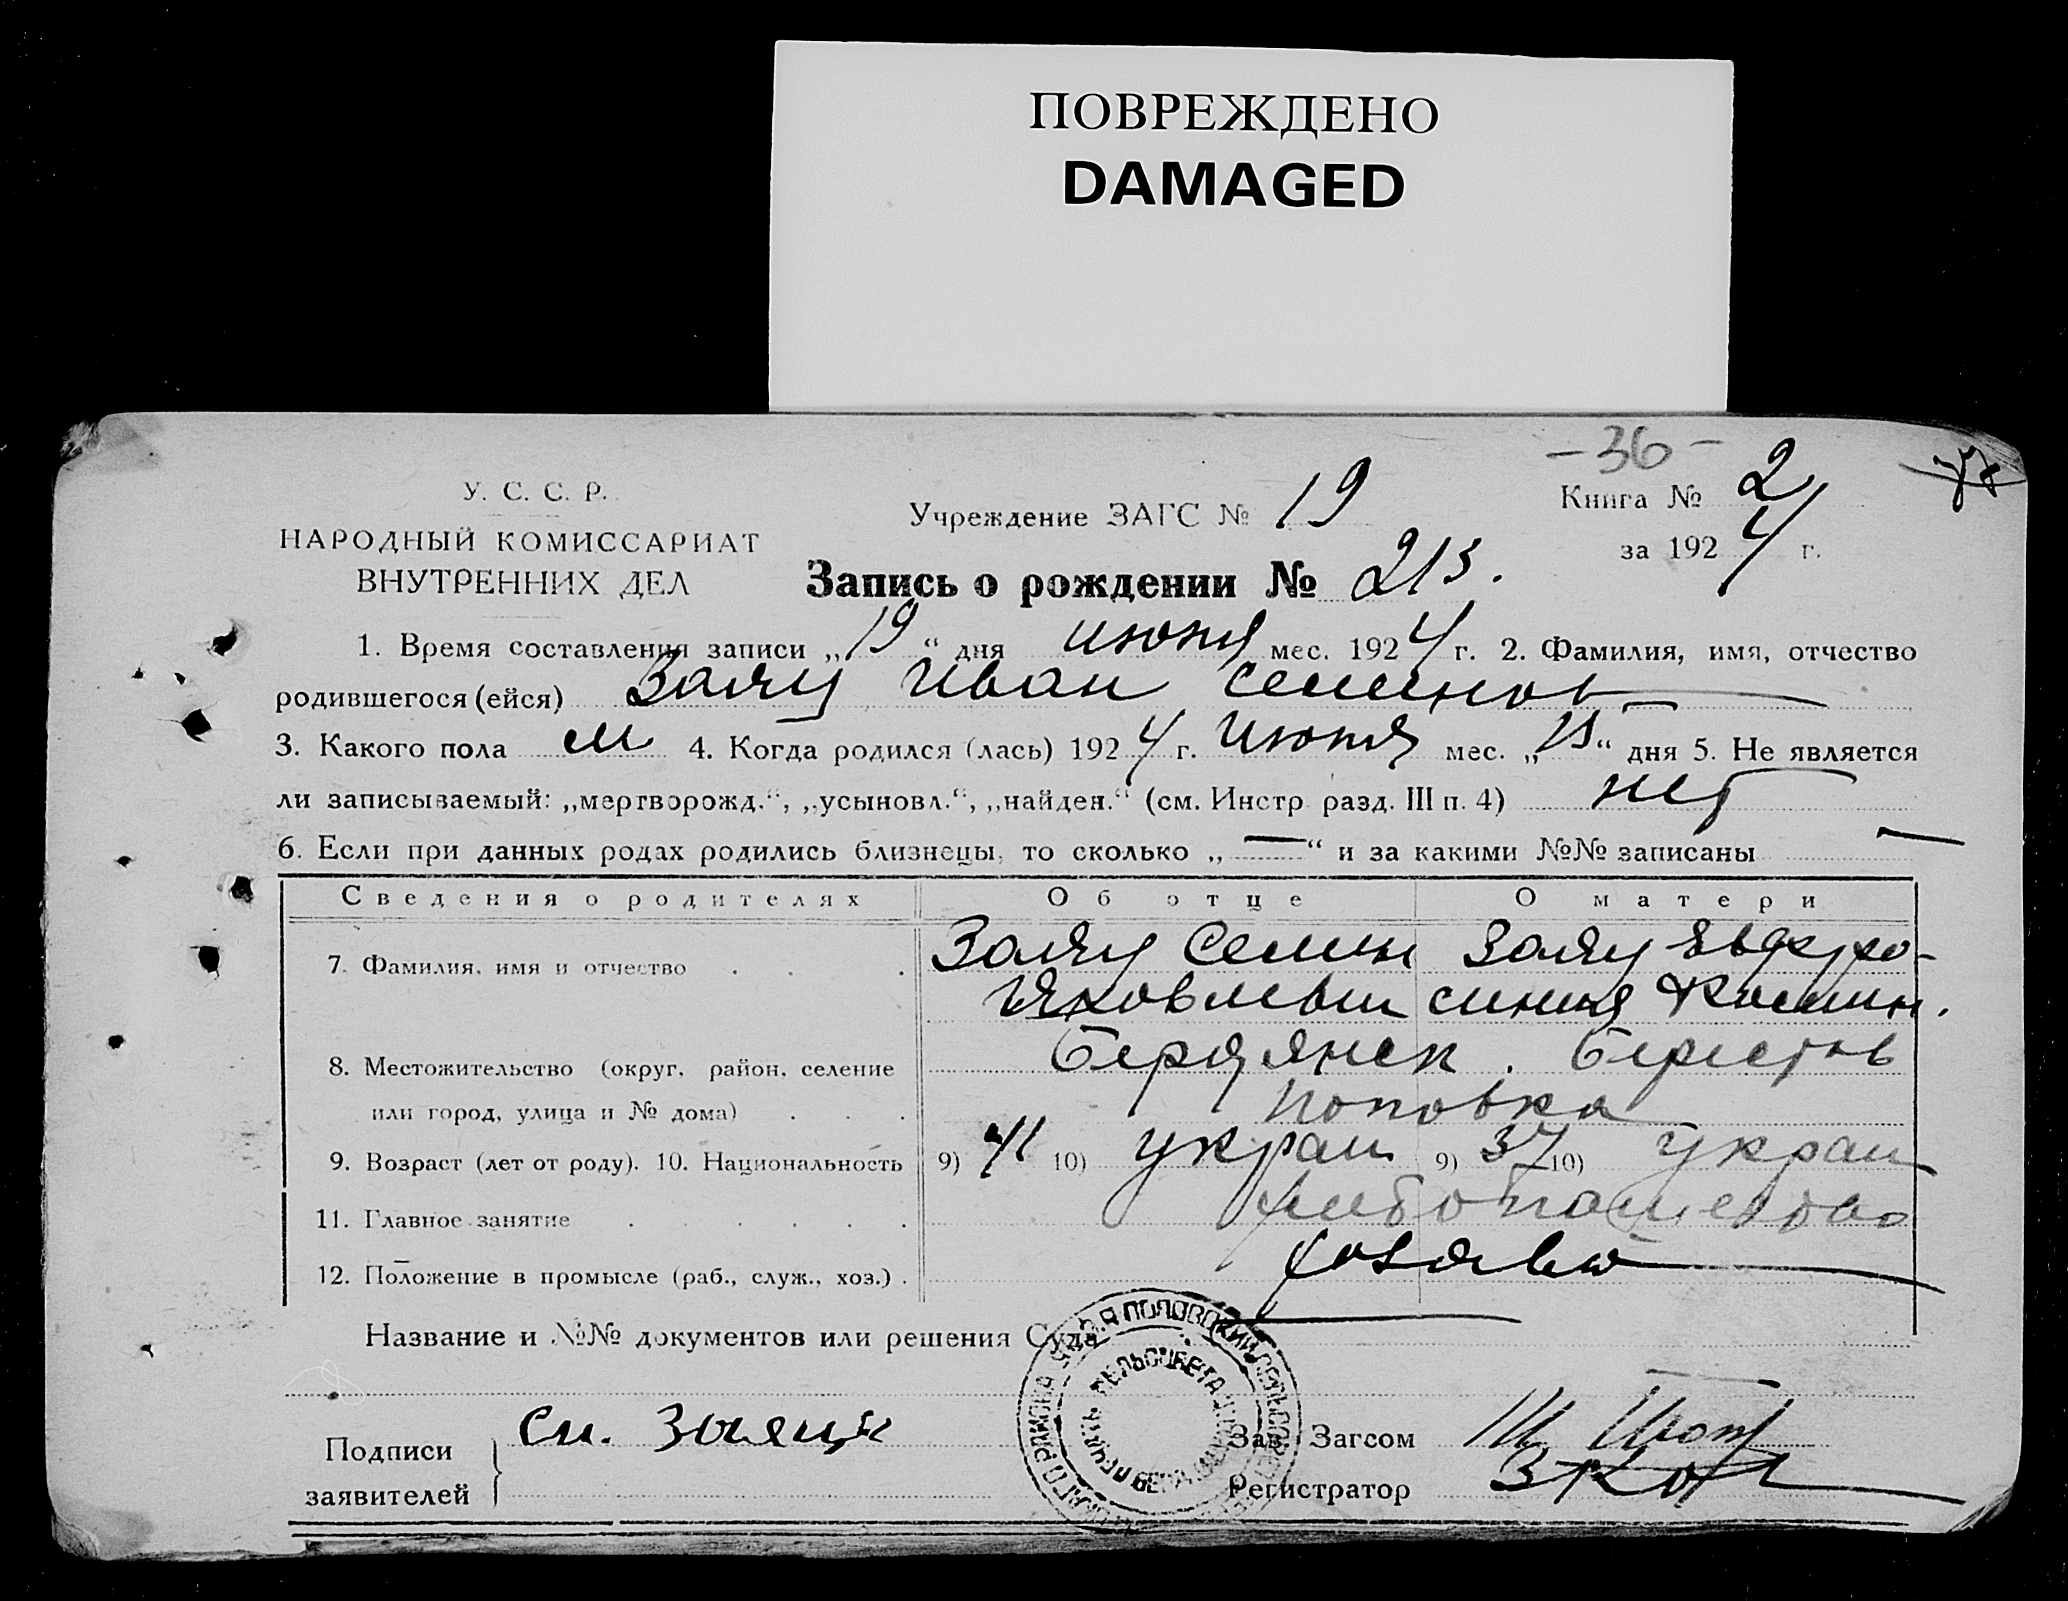 ПОВРЕЖДЕНО
DAMAGED
-36-
У. С. С. Р.
НАРОДНЫЙ КОМИССАРИАТ
ВНУТРЕННИХ ДЕЛ
Учреждение ЗАГС № 19
Книга № 2
за 1924 г.
Запись о рождении № 213.
1. Время составления записи „19“ дня июня мес. 1924 г. 2. Фамилия, имя, отчество
родившегося (ейся) Заяц Иван Семенов
3. Какого пола м 4. Когда родился (лась) 1924 г. Июня мес. „15“ дня 5. Не является
ли записываемый: „мертворожд.“, „усыновл.“, „найден.“ (см. Инстр. разд. III п. 4) нет
6. Если при данных родах родились близнецы, то сколько „—“ и за какими №№ записаны —
Сведения о родителях Об отце О матери
7. Фамилия, имя и отчество Заяц Семен Заяц Евфро-
Яковлевич синия
8. Местожительство (округ, район, селение Бердянск. Берестов
или город, улица и № дома) Поповка
9. Возраст (лет от роду). 10. Национальность 9) 41 10) украин 9) 37 10) украин
11. Главное занятие хлебопашество
12. Положение в промысле (раб., служ., хоз.) хозяева
Название и №№ документов или решения Суда
Подписи заявителей См. Заяц
Зав. Загсом
Регистратор